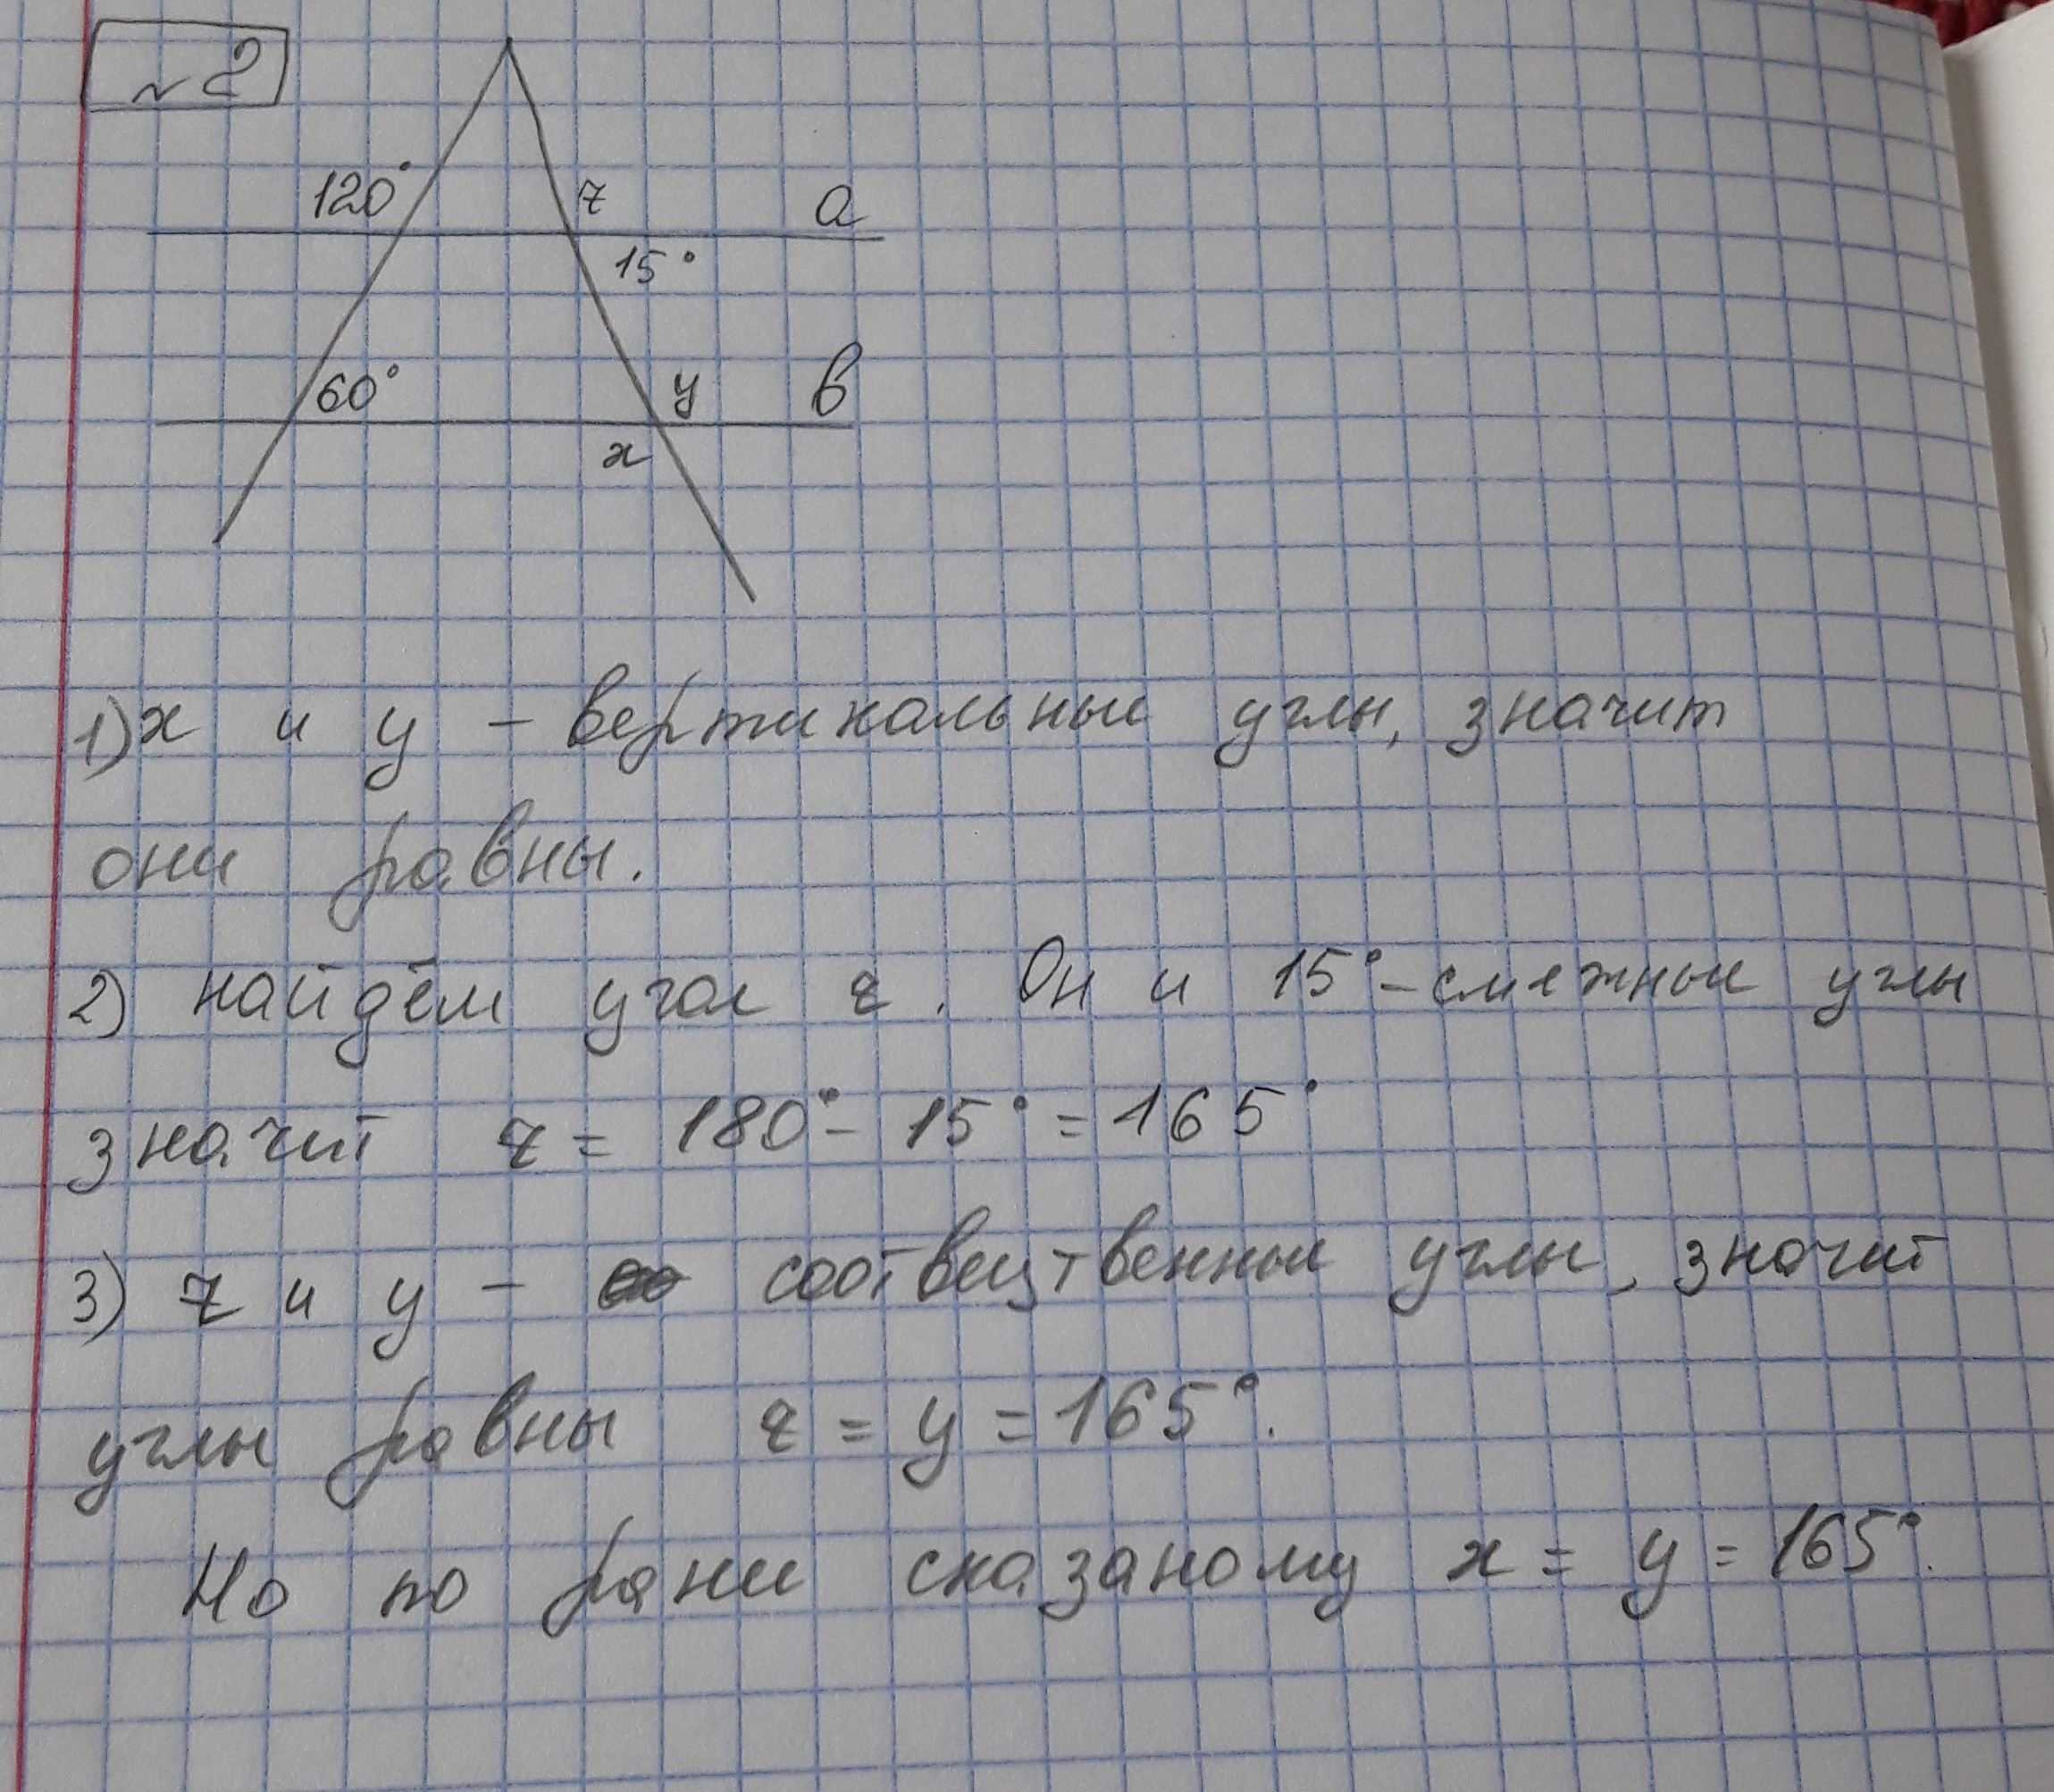 №2
120° z a
15°
60° y в
x
1) x и y – вертикальные углы, значит
они равны.
2) найдём угол z. Он и 15° – смежные углы
значит z = 180° – 15° = 165°
3) z и y – соотвецтвенные углы, значит
углы равны z = y = 165°.
Но по рани сказаному x = y = 165°.